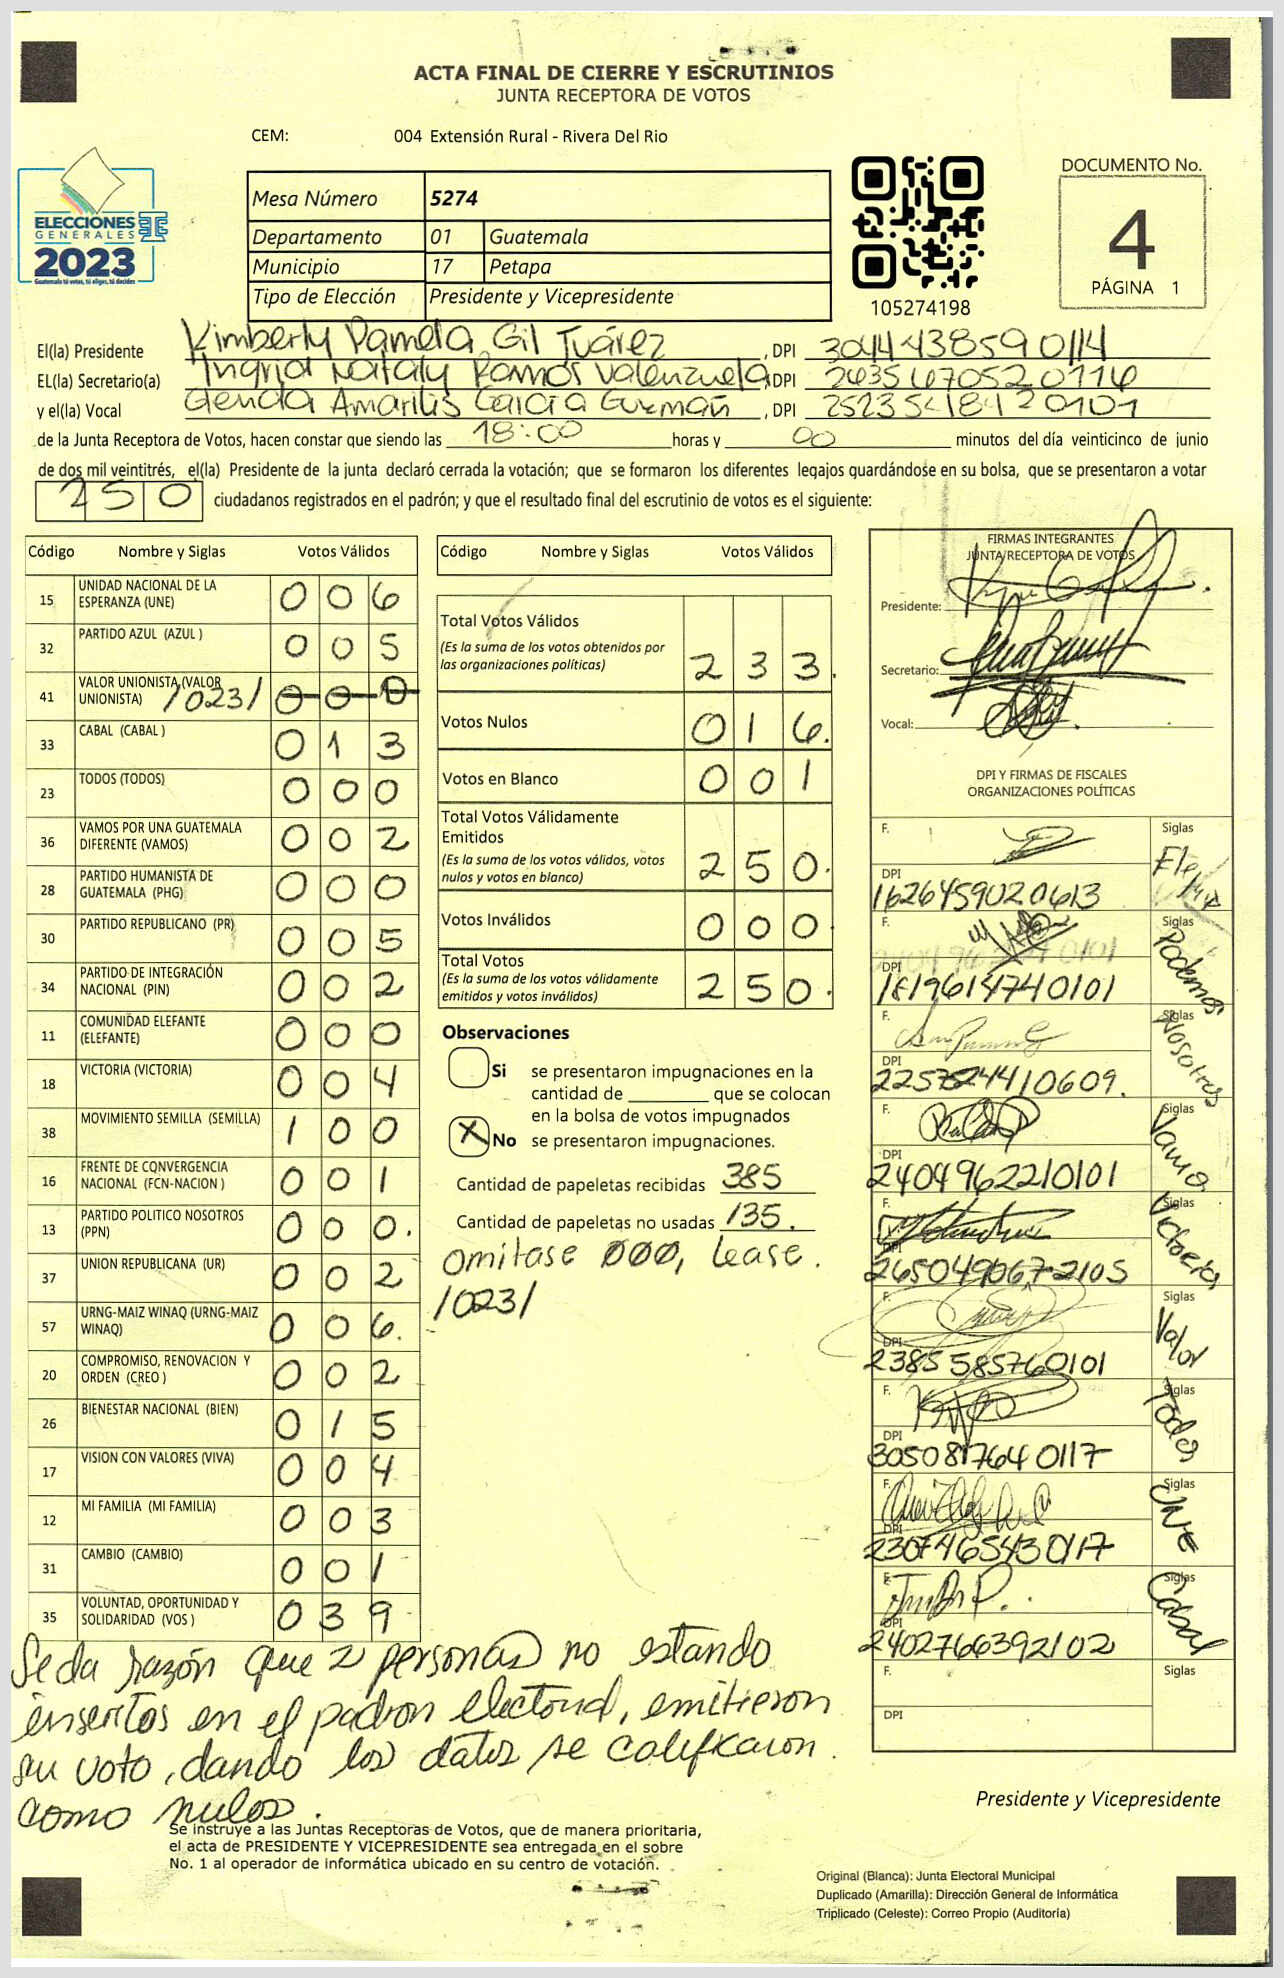 ACTA FINAL DE CIERRE Y ESCRUTINIOS
JUNTA RECEPTORA DE VOTOS
CEM: 004 Extensión Rural - Rivera Del Rio
ELECCIONES
GENERALES
2023
Guatemala tú votas, tú eliges, tú decides
Mesa Número 5274
Departamento 01 Guatemala
Municipio 17 Petapa
Tipo de Elección Presidente y Vicepresidente
105274198
DOCUMENTO No.
4
PÁGINA 1
El(la) Presidente Kimberly Pamela Gil Tuárez, DPI 3044438590114
EL(la) Secretario(a) Ingrid Nataly Ramos Valenzuela, DPI 2635670520116
y el(la) Vocal Glenda Amarilis García Guzmán, DPI 2523548420101
de la Junta Receptora de Votos, hacen constar que siendo las 18:00 horas y 00 minutos del día veinticinco de junio
de dos mil veintitrés, el(la) Presidente de la junta declaró cerrada la votación; que se formaron los diferentes legajos guardándose en su bolsa, que se presentaron a votar
250 ciudadanos registrados en el padrón; y que el resultado final del escrutinio de votos es el siguiente:
Código Nombre y Siglas Votos Válidos
15 UNIDAD NACIONAL DE LA ESPERANZA (UNE) 006
32 PARTIDO AZUL (AZUL ) 005
41 VALOR UNIONISTA (VALOR UNIONISTA) /023/ 000
33 CABAL (CABAL ) 013
23 TODOS (TODOS) 000
36 VAMOS POR UNA GUATEMALA DIFERENTE (VAMOS) 002
28 PARTIDO HUMANISTA DE GUATEMALA (PHG) 000
30 PARTIDO REPUBLICANO (PR) 005
34 PARTIDO DE INTEGRACIÓN NACIONAL (PIN) 002
11 COMUNIDAD ELEFANTE (ELEFANTE) 000
18 VICTORIA (VICTORIA) 004
38 MOVIMIENTO SEMILLA (SEMILLA) 100
16 FRENTE DE CONVERGENCIA NACIONAL (FCN-NACION ) 001
13 PARTIDO POLITICO NOSOTROS (PPN) 000.
37 UNION REPUBLICANA (UR) 002
57 URNG-MAIZ WINAQ (URNG-MAIZ WINAQ) 006.
20 COMPROMISO, RENOVACION Y ORDEN (CREO ) 002
26 BIENESTAR NACIONAL (BIEN) 015
17 VISION CON VALORES (VIVA) 004
12 MI FAMILIA (MI FAMILIA) 003
31 CAMBIO (CAMBIO) 001
35 VOLUNTAD, OPORTUNIDAD Y SOLIDARIDAD (VOS ) 039
Código Nombre y Siglas Votos Válidos
Total Votos Válidos
(Es la suma de los votos obtenidos por
las organizaciones políticas) 233.
Votos Nulos 016.
Votos en Blanco 001
Total Votos Válidamente
Emitidos
(Es la suma de los votos válidos, votos
nulos y votos en blanco) 250.
Votos Inválidos 000.
Total Votos
(Es la suma de los votos válidamente
emitidos y votos inválidos) 250.
Observaciones
Si se presentaron impugnaciones en la
cantidad de ________ que se colocan
en la bolsa de votos impugnados
X No se presentaron impugnaciones.
Cantidad de papeletas recibidas 385
Cantidad de papeletas no usadas 135.
omitase 000, lease.
/023/
FIRMAS INTEGRANTES
JUNTA RECEPTORA DE VOTOS
Presidente:
Secretario:
Vocal:
DPI Y FIRMAS DE FISCALES
ORGANIZACIONES POLÍTICAS
F. Siglas
DPI 1626459020613
F. Siglas Podemos
DPI 1819614740101
F. Siglas Nosotros
DPI
F. Siglas Vamos
DPI 2404962210101
F. Siglas Victoria
DPI 2650490672105
F. Siglas Valor
DPI 2385585760101
F. Siglas Todos
DPI 3050817640117
F. Siglas UNE
DPI 2307465430117
F. Siglas Cabal
DPI 2402766392102
F. Siglas
DPI
Se da razón que 2 personas no estando
inscritos en el padron electoral, emitieron
su voto, dando los datos se calificaron.
como nulos.
Presidente y Vicepresidente
Se instruye a las Juntas Receptoras de Votos, que de manera prioritaria,
el acta de PRESIDENTE Y VICEPRESIDENTE sea entregada en el sobre
No. 1 al operador de informática ubicado en su centro de votación.
Original (Blanca): Junta Electoral Municipal
Duplicado (Amarilla): Dirección General de Informática
Triplicado (Celeste): Correo Propio (Auditoría)